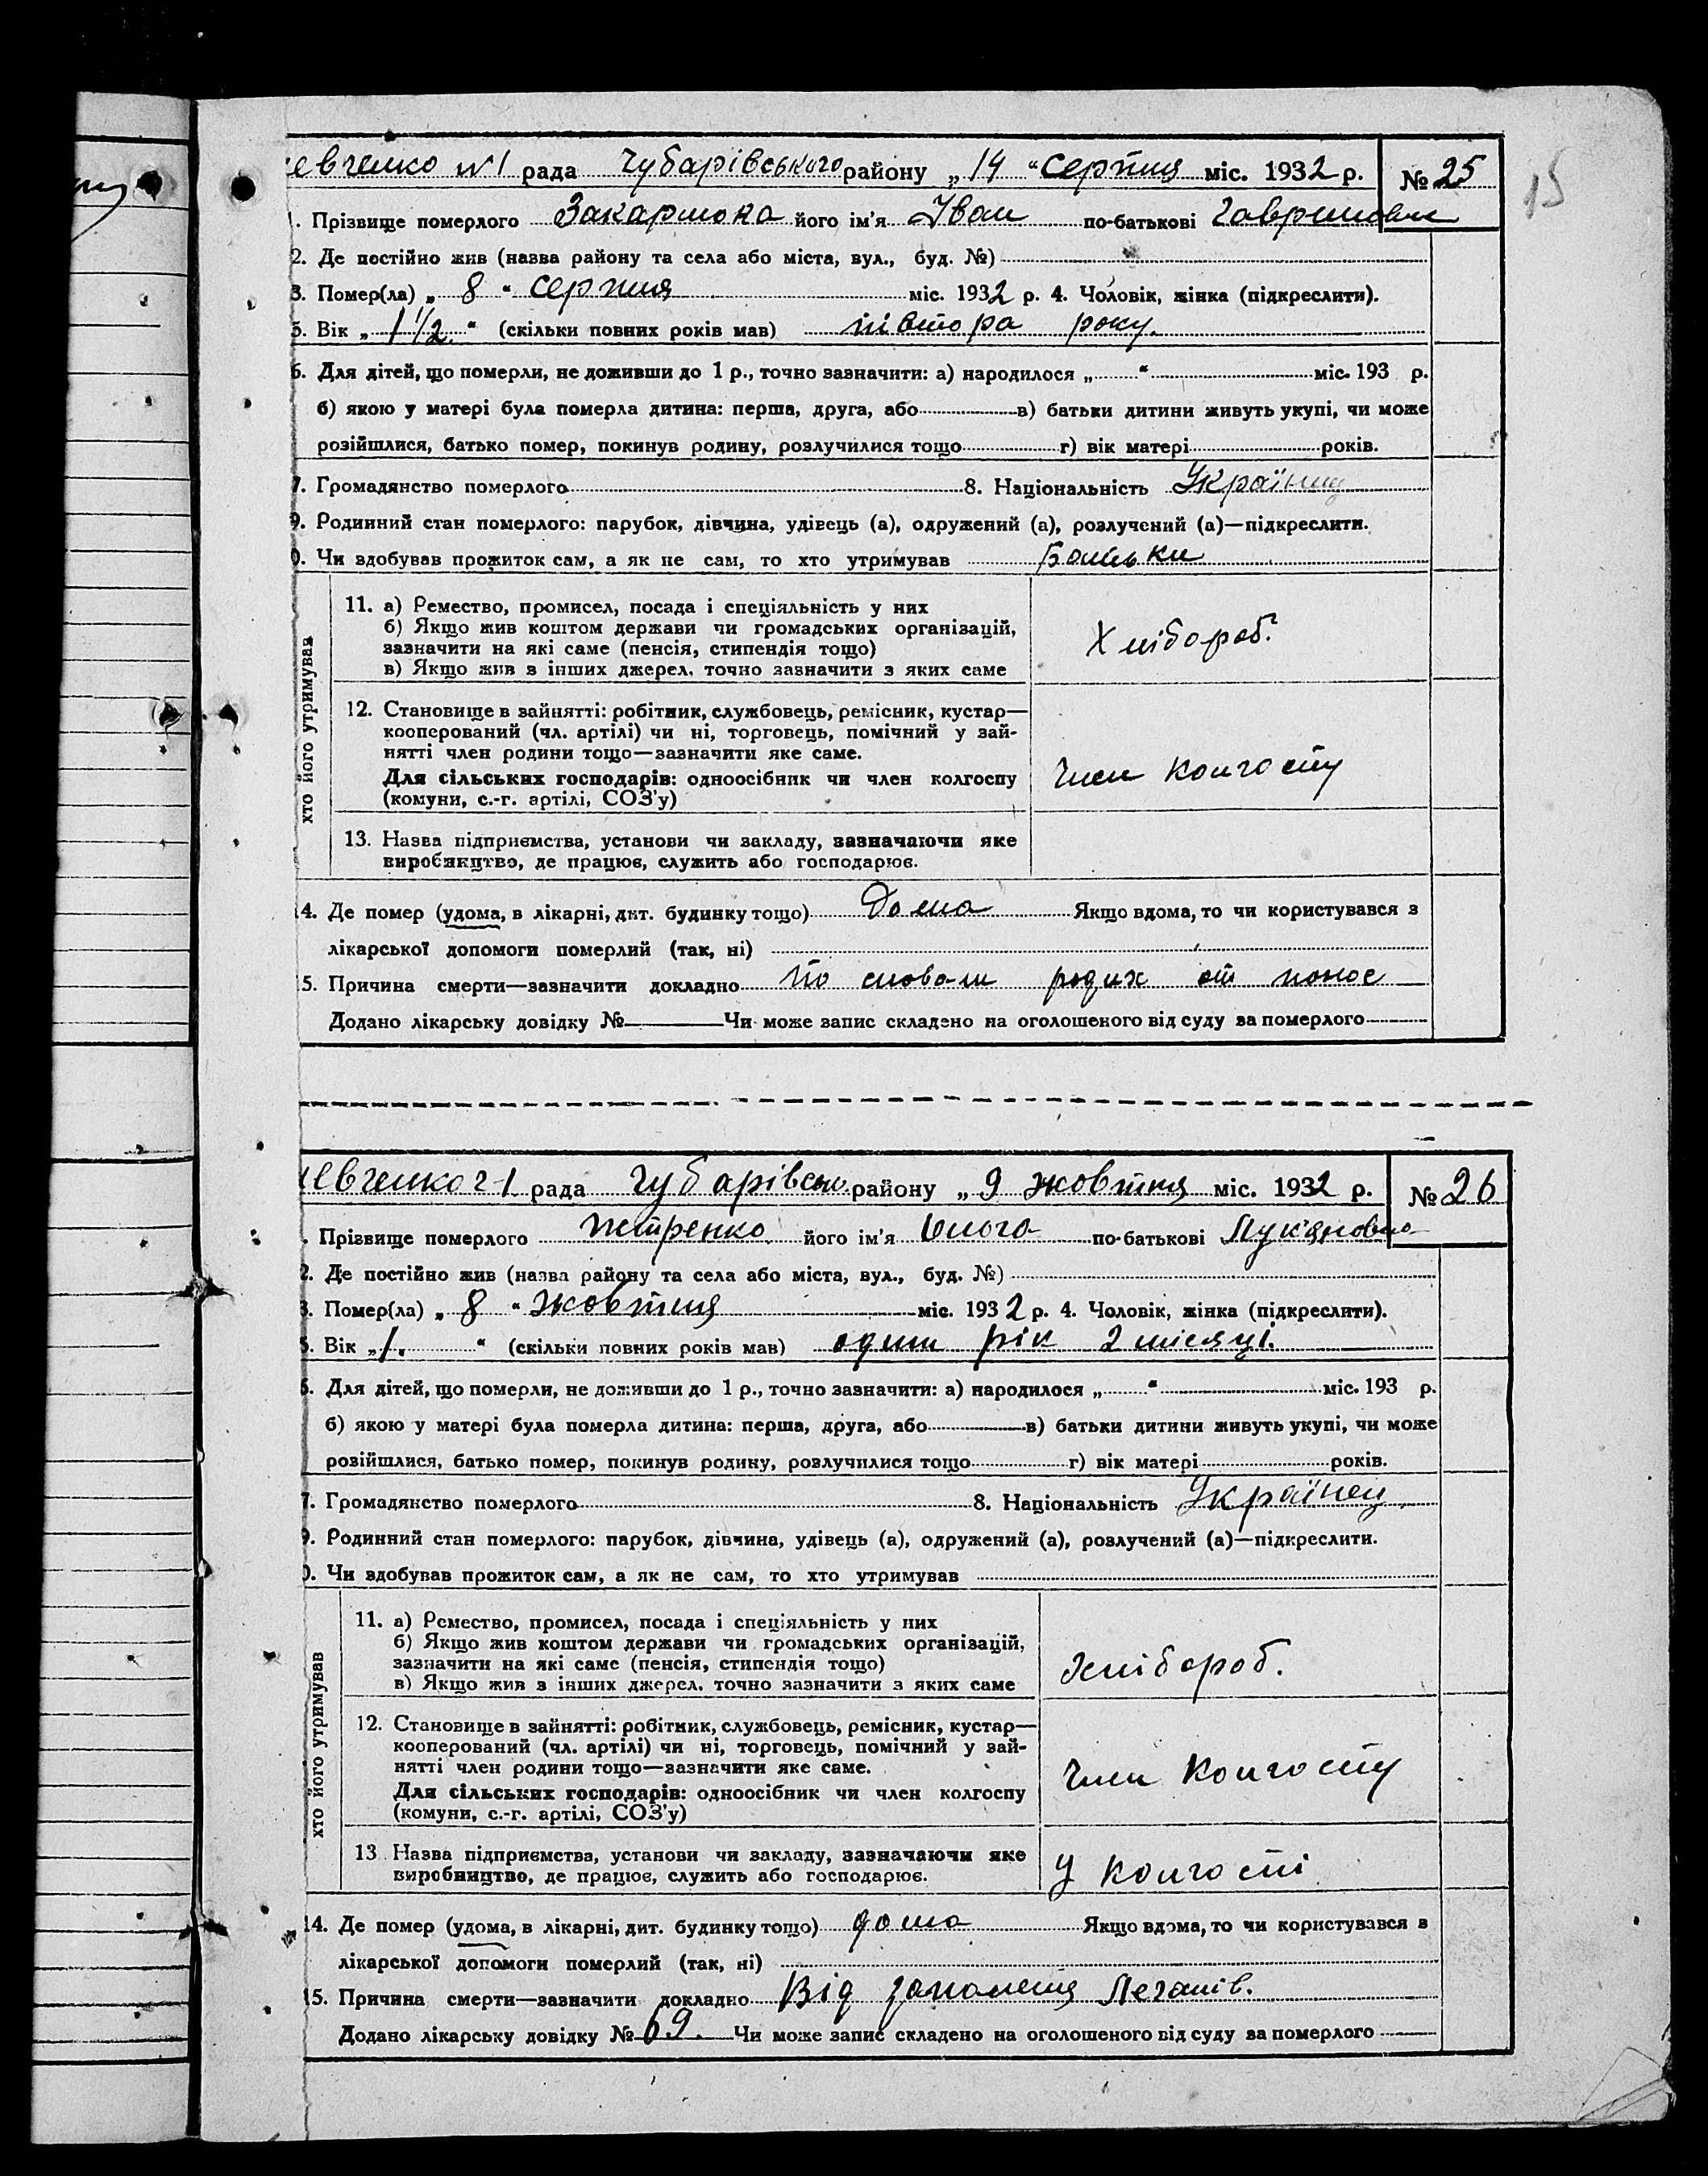 евченко №1 рада Чубарівського району „14“ серпня міс. 1932 р. № 25
15
1. Прізвище померлого його ім'я Іван по-батькові
2. Де постійно жив (назва району та села або міста, вул., буд. №)
3. Помер(ла) „8“ серпня міс. 1932 р. 4. Чоловік, жінка (підкреслити).
5. Вік „1 1/2“ (скільки повних років мав) півтора року.
6. Для дітей, що померли, не доживши до 1 р., точно зазначити: а) народилося „ “ міс. 193 р.
б) якою у матері була померла дитина: перша, друга, або в) батьки дитини живуть укупі, чи може
розійшлися, батько помер, покинув родину, розлучилися тощо г) вік матері років.
7. Громадянство померлого 8. Національність Українец
9. Родинний стан померлого: парубок, дівчина, удівець (а), одружений (а), розлучений (а)—підкреслити.
0. Чи здобував прожиток сам, а як не сам, то хто утримував Батьки
хто його утримував
11. а) Ремество, промисел, посада і спеціяльність у них
б) Якщо жив коштом держави чи громадських організацій,
зазначити на які саме (пенсія, стипендія тощо)
в) Якщо жив з інших джерел, точно зазначити з яких саме
Хлібороб.
12. Становище в зайнятті: робітник, службовець, ремісник, кустар—
кооперований (чл. артілі) чи ні, торговець, помічний у зай-
нятті член родини тощо—зазначити яке саме.
Для сільських господарів: одноосібник чи член колгоспу
(комуни, с.-г. артілі, СОЗ'у)
Член колгоспу
13. Назва підприємства, установи чи закладу, зазначаючи яке
виробництво, де працює, служить або господарює.
14. Де помер (удома, в лікарні, дит. будинку тощо) Дома Якщо вдома, то чи користувався з
лікарської допомоги померлий (так, ні)
15. Причина смерти—зазначити докладно По словам родих от понос
Додано лікарську довідку № Чи може запис складено на оголошеного від суду за померлого
евченко ч 1 рада Чубарівсько. району „9 жовтня міс. 1932 р. № 26
. Прізвище померлого Петренко його ім'я Ольга по-батькові Лук'яновна
2. Де постійно жив (назва району та села або міста, вул., буд. №)
3. Помер(ла) „8“ жовтня міс. 1932 р. 4. Чоловік, жінка (підкреслити).
5. Вік „1.“ (скільки повних років мав) один рік 2 місяці.
6. Для дітей, що померли, не доживши до 1 р., точно зазначити: а) народилося „ “ міс. 193 р.
б) якою у матері була померла дитина: перша, друга, або в) батьки дитини живуть укупі, чи може
розійшлися, батько помер, покинув родину, розлучилися тощо г) вік матері років.
7. Громадянство померлого 8. Національність Українец
9. Родинний стан померлого: парубок, дівчина, удівець (а), одружений (а), розлучений (а)—підкреслити.
0. Чи здобував прожиток сам, а як не сам, то хто утримував
хто його утримував
11. а) Ремество, промисел, посада і спеціяльність у них
б) Якщо жив коштом держави чи громадських організацій,
зазначити на які саме (пенсія, стипендія тощо)
в) Якщо жив з інших джерел, точно зазначити з яких саме
хлібороб.
12. Становище в зайнятті: робітник, службовець, ремісник, кустар—
кооперований (чл. артілі) чи ні, торговець, помічний у зай-
нятті член родини тощо—зазначити яке саме.
Для сільських господарів: одноосібник чи член колгоспу
(комуни, с.-г. артілі, СОЗ'у)
Член колгоспу
13 Назва підприємства, установи чи закладу, зазначаючи яке
виробництво, де працює, служить або господарює.
У колгоспі
14. Де помер (удома, в лікарні, дит. будинку тощо) дома Якщо вдома, то чи користувався з
лікарської допомоги померлий (так, ні)
15. Причина смерти—зазначити докладно Від запалення Легенів.
Додано лікарську довідку № 69. Чи може запис складено на оголошеного від суду за померлого